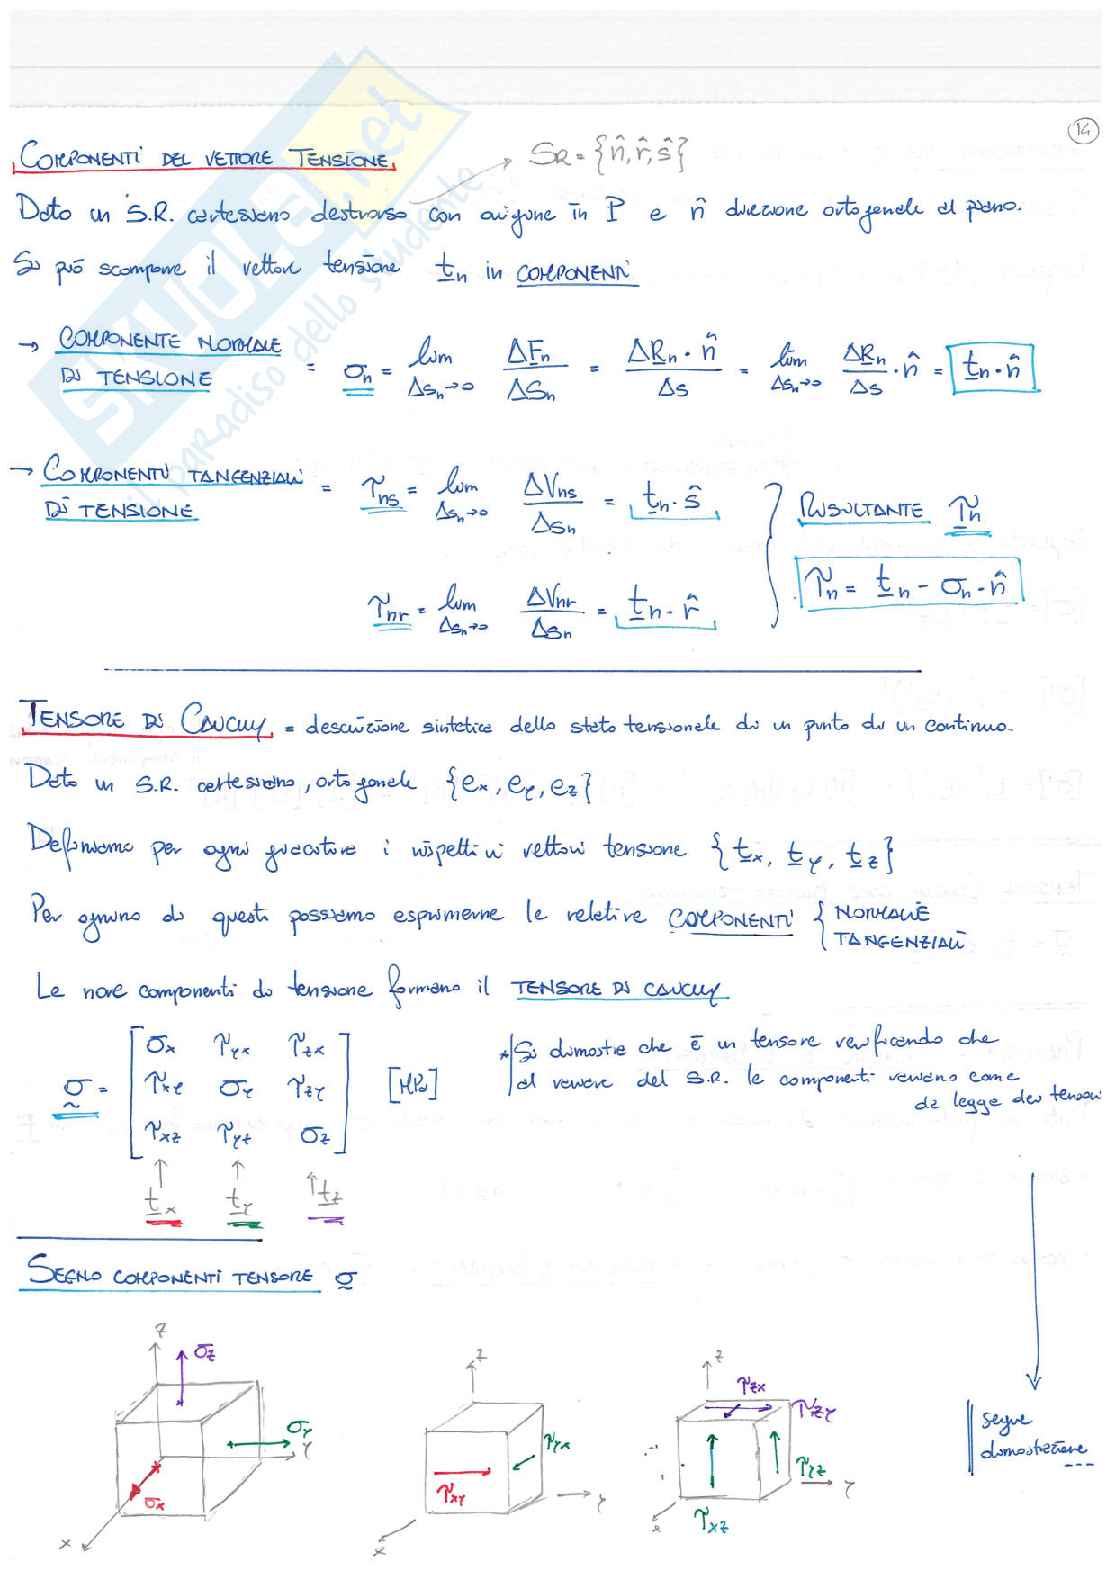 14
COMPONENTI DEL VETTORE TENSIONE → SR = {n̂, r̂, ŝ}
Dato un S.R. cartesiano destrorso con origine in P e n̂ direzione ortogonale al piano.
Si può scomporre il vettore tensione t̲n in COMPONENTI
→ COMPONENTE NORMALE DI TENSIONE = σn = lim ΔSn→0 ΔFn/ΔSn = ΔR̲n · n̂/ΔS = lim ΔSn→0 ΔR̲n/ΔS · n̂ = t̲n · n̂
→ COMPONENTI TANGENZIALI DI TENSIONE = τns = lim ΔSn→0 ΔVns/ΔSn = t̲n · ŝ
τnr = lim ΔSn→0 ΔVnr/ΔSn = t̲n · r̂
} RISULTANTE τ̲n
τn = t̲n - σn · n̂
TENSORE DI CAUCHY = descrizione sintetica dello stato tensionale di un punto di un continuo.
Dato un S.R. cartesiano, ortogonale {ex, ey, ez}
Definiamo per ogni giacitura i rispettivi vettori tensione {t̲x, t̲y, t̲z}
Per ognuno di questi possiamo esprimerne le relative COMPONENTI { NORMALIE
TANGENZIALI
Le nove componenti di tensione formano il TENSORE DI CAUCHY
σ̰ = [ σx τyx τzx
τxy σy τzy
τxz τyz σz ] [MPa]
* Si dimostra che è un tensore verificando che
al variare del S.R. le componenti variano come
da legge dei tensori
↑ t̲x ↑ t̲y ↑ t̲z
SEGNO COMPONENTI TENSORE σ̰
z σz σy y σx x
z τyx τxy y x
z τzx τzy τyz y τxz
segue
dimostrazione
---
SKUOLA.net
il paradiso dello studente